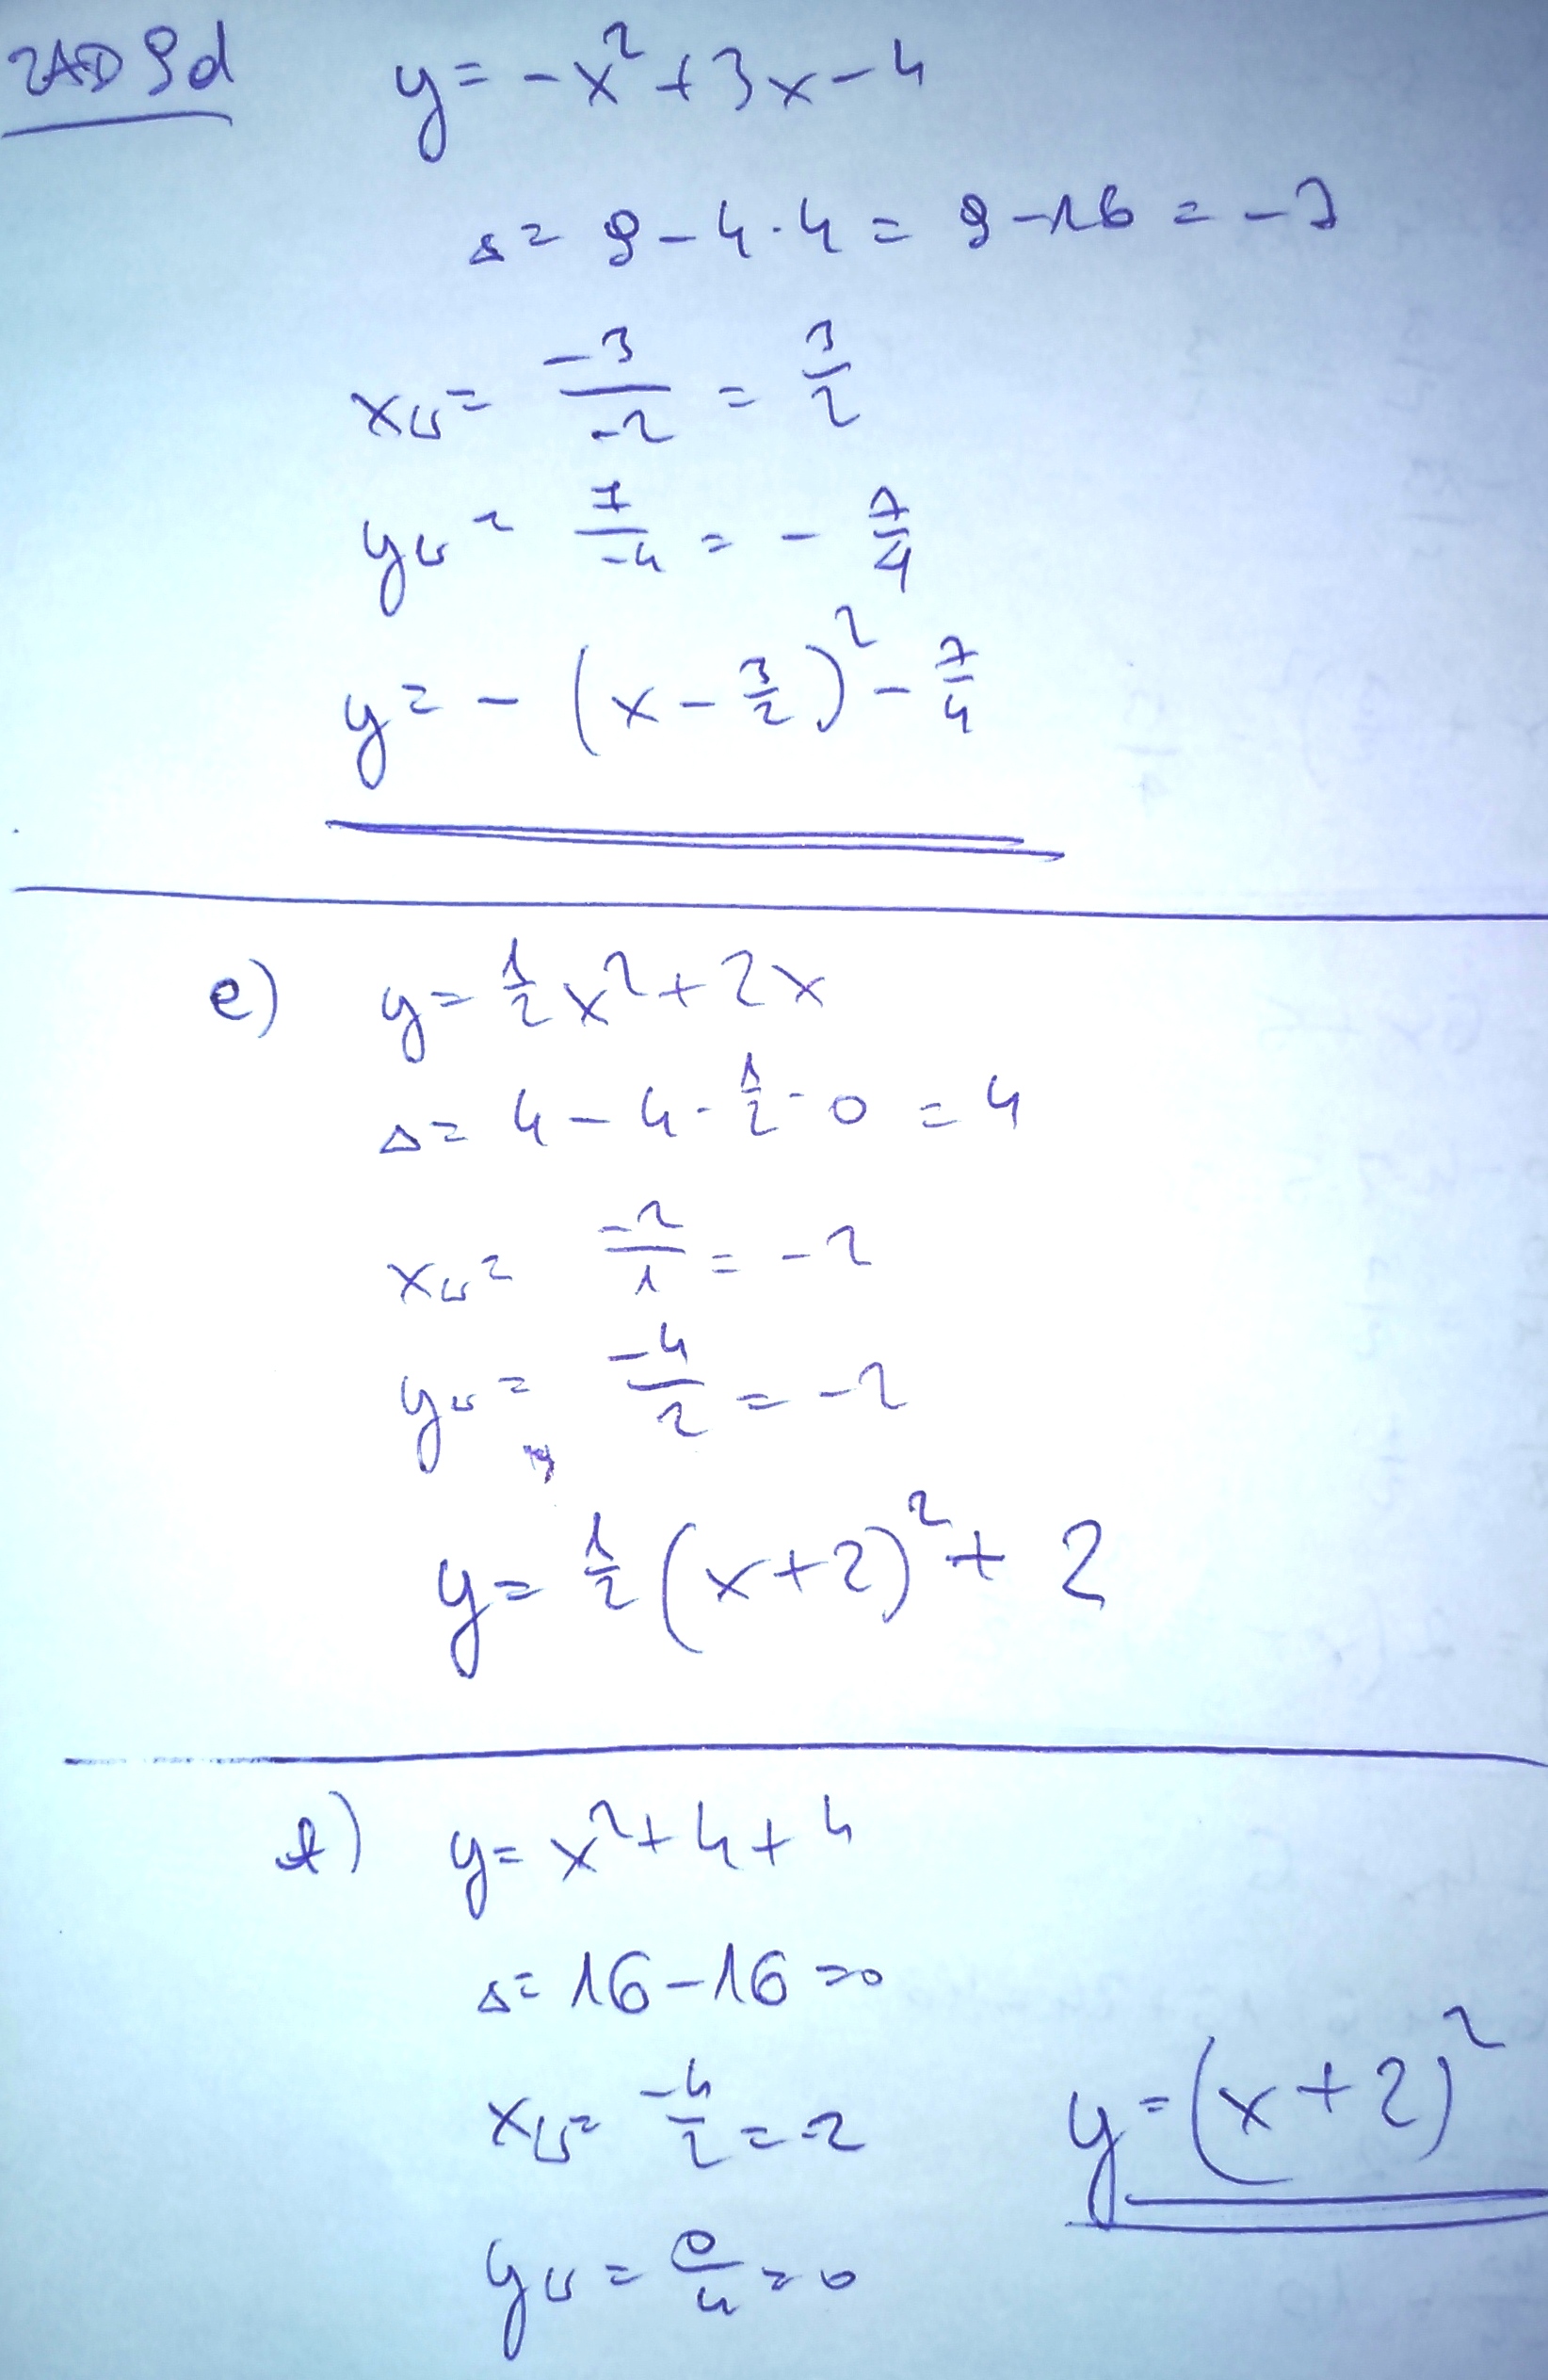 ZAD 9d y = -x² + 3x - 4
Δ = 9 - 4·4 = 9 - 16 = -7
xw = -3/-2 = 3/2
yw = 7/-4 = - 7/4
y = - (x - 3/2)² - 7/4
e) y = 1/2 x² + 2x
Δ = 4 - 4·1/2·0 = 4
xw = -2/1 = -2
yw = -4/2 = -2
y = 1/2 (x+2)² + 2
f) y = x² + 4 + 4
Δ = 16 - 16 = 0
xw = -4/2 = -2
y = (x+2)²
yw = 0/4 = 0